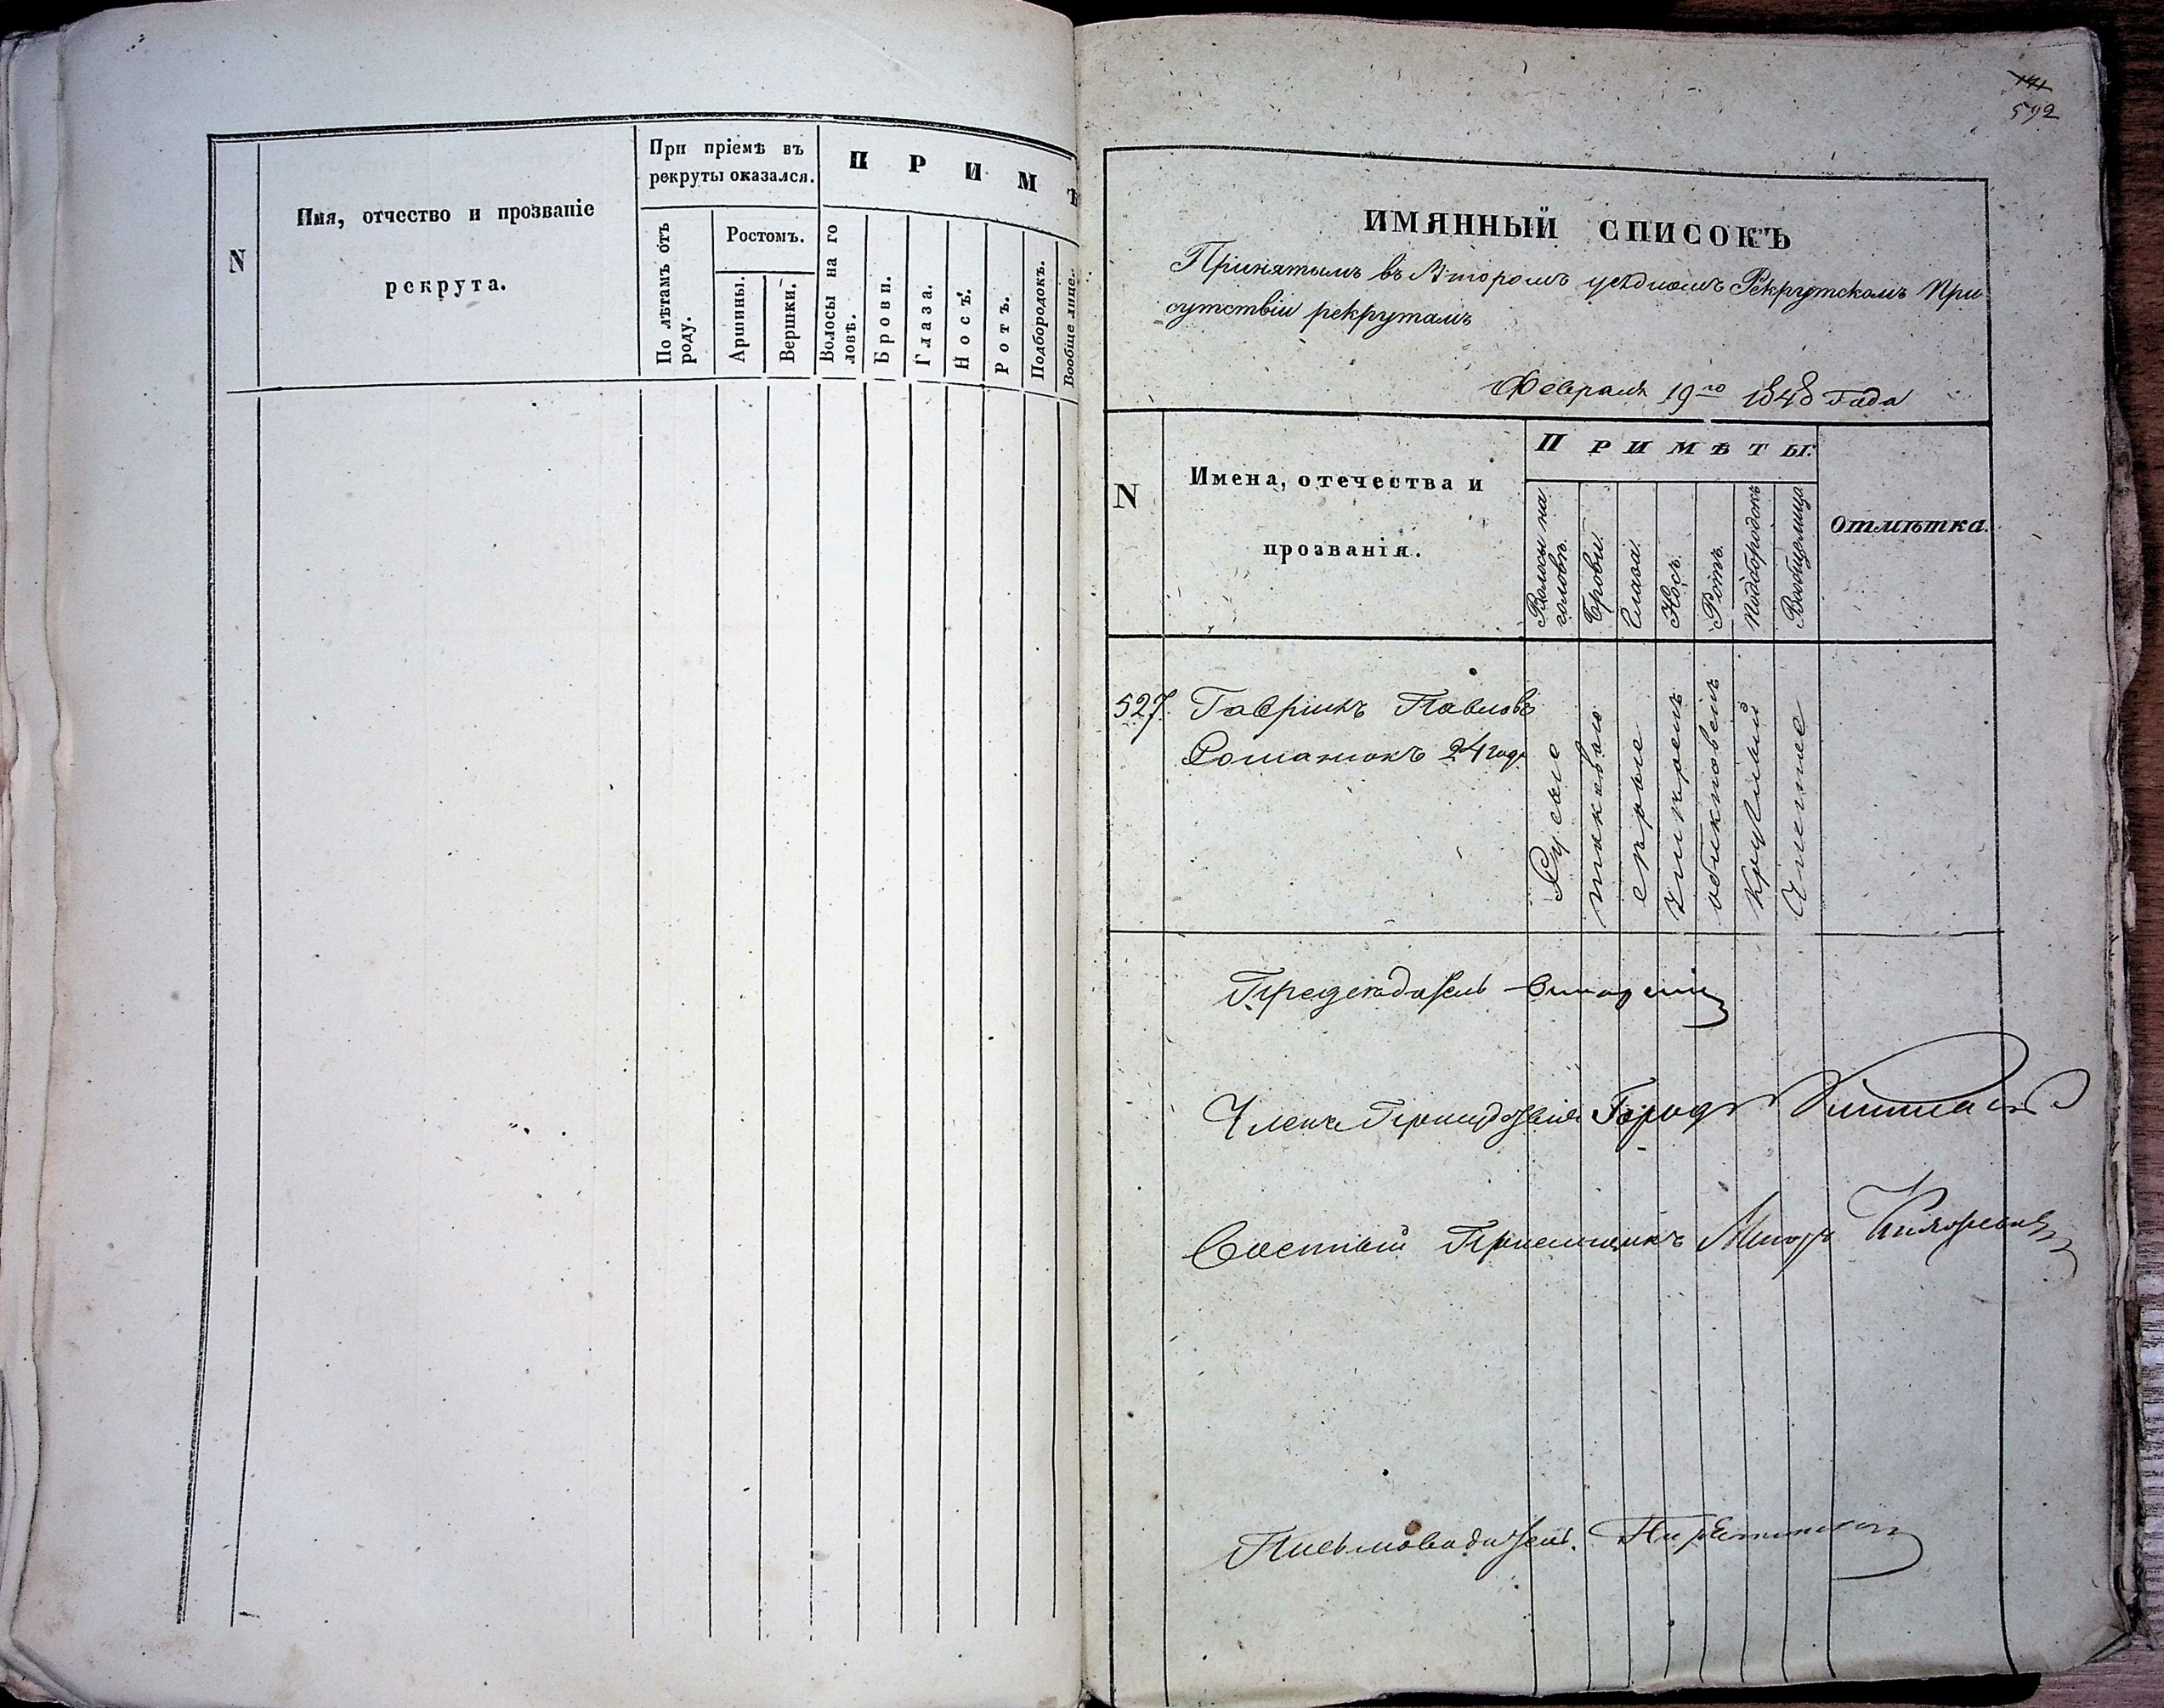 N
Имя, отчество и прозваніе
рекрута.
При пріемѣ въ
рекруты оказался.
По лѣтамъ отъ
роду.
Ростомъ.
Аршины.
Вершки.
П Р И М Ѣ
Волосы на го
ловѣ.
Брови.
Глаза.
Носъ.
Ротъ.
Подбородокъ.
Вообще лице.
592
ИМЯННЫЙ СПИСОКЪ
Принятымъ въ Второмъ уѣздномъ Рекрутскомъ При
сутствіи рекрутамъ
Февраля 19го 1848 Года
N
Имена, отечества и
прозванія.
П Р И М Ѣ Т Ы:
Волосы на
головѣ.
Брови.
Глаза.
Носъ.
Ротъ.
Подбородокъ
Вообще лица
Отмѣтка.
527. Гаврилъ Павловъ
Романюкъ 24 год.
Русые
таковые
сѣрые
умѣрен
обыкновен
Круглый
Чистое
Председатель
Членъ Присудствія
Военный Пріемщикъ Маіоръ
Письмоводитель.